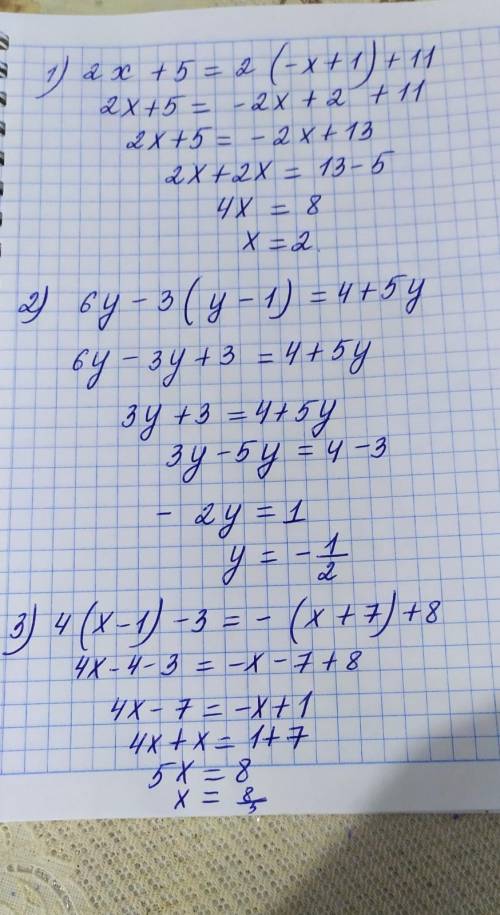 1) 2x + 5 = 2 (-x+1) + 11
2x+5 = -2x + 2 + 11
2x+5 = -2x+13
2x+2x = 13-5
4x = 8
x = 2.
2) 6y - 3(y - 1) = 4 + 5y
6y - 3y + 3 = 4 + 5y
3y + 3 = 4+5y
3y - 5y = 4 - 3
- 2y = 1
y = -1/2
3) 4(x-1) - 3 = - (x + 7) + 8
4x - 4 - 3 = -x - 7 + 8
4x - 7 = -x + 1
4x + x = 1+7
5x = 8
x = 8/5